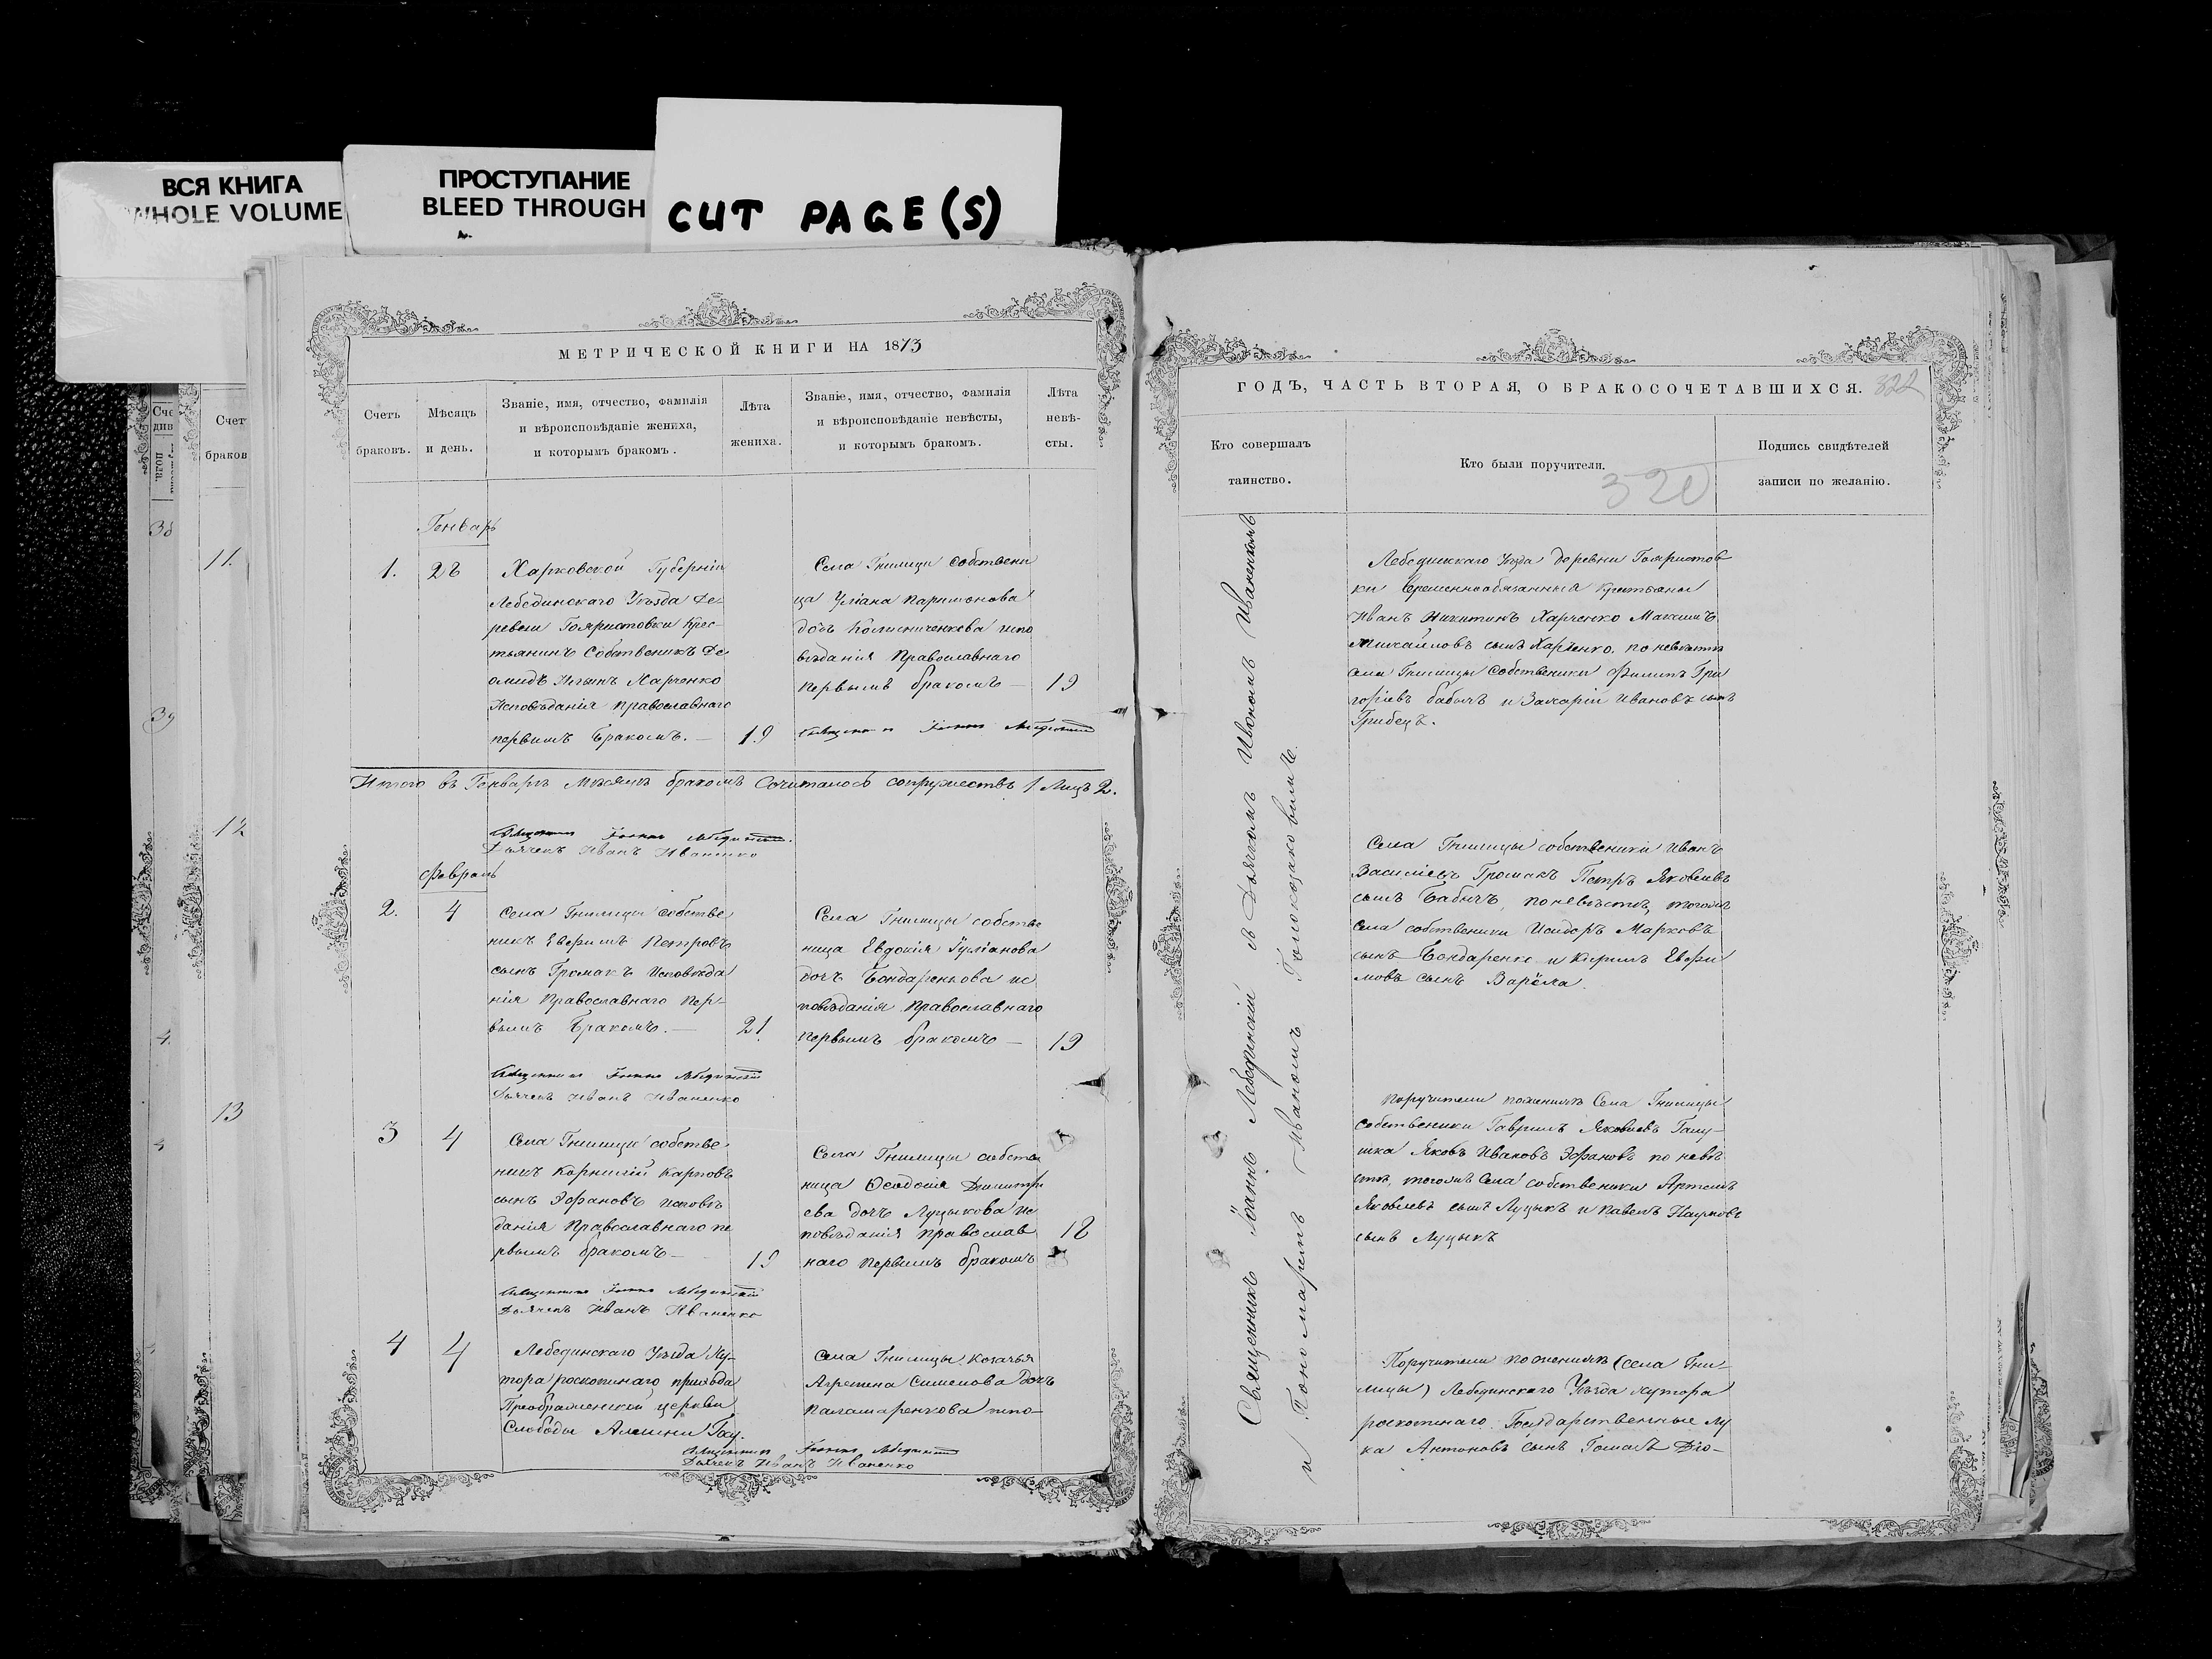 ВСЯ КНИГА
WHOLE VOLUME
ПРОСТУПАНИЕ
BLEED THROUGH
CUT PAGE(S)
МЕТРИЧЕСКОЙ КНИГИ НА 1873
Счетъ
браковъ.
Мѣсяцъ
и день.
Званіе, имя, отчество, фамилія
и вѣроисповѣданіе жениха,
и которымъ бракомъ.
Лѣта
жениха.
Званіе, имя, отчество, фамилія
и вѣроисповѣданіе невѣсты,
и которымъ бракомъ.
Лѣта
невѣ-
сты.
Генварь
1.
28
Харковской Губерніи
Лебединскаго Уѣзда Де-
ревни Бояристовки крес-
тьянинъ Собственикъ Де
омидъ Ильинъ Харченко
Исповѣданія православнаго
первымъ Бракомъ. —
19
Села Гнилицы собствени
ца Уліана Паримонова
дочь Колисниченкова испо
вѣданія Православнаго
первымъ бракомъ —
19
Священникъ Іоаннъ Лебединскій
Итого въ Генварѣ Мѣсяцѣ бракомъ Сочиталось супружествъ 1 Лицъ 2.
Священникъ Іоаннъ Лебединскій
Дьячекъ Иванъ Иваненко
Февраль
2.
4
Села Гнилицы собстве
никъ Евфимъ Петровъ
сынъ Громакъ Исповѣда
нія Православнаго Пер-
вымъ Бракомъ. —
21.
Села Гнилицы собстве
ница Евдокія Гуліанова
дочь Бондаренкова ис
повѣданія Православнаго
первымъ бракомъ —
19
Священникъ Іоаннъ Лебединскій
Дьячекъ Иванъ Иваненко
3
4
Села Гнилицы собстве
никъ Корнилій Карповъ
сынъ Эфановъ исповѣ
данія Православнаго пе
рвымъ бракомъ —
19
Села Гнилицы собстве
ница Ѳеодосія Димитрі
ева дочь Луцыкова Ис
повѣданія православ
наго первымъ бракомъ
18
Священникъ Іоаннъ Лебединскій
Дьячекъ Иванъ Иваненко
4
4
Лебединскаго Уѣзда Ху-
тора роскошнаго прихода
Преображенской церкви
Слободы Алешни Гос.
Села Гнилицы Козачья
Агрепена Симеонова дочь
Паламаренкова испо-
Священникъ Іоаннъ Лебединскій
Дьячекъ Иванъ Иваненко
ГОДЪ, ЧАСТЬ ВТОРАЯ, О БРАКОСОЧЕТАВШИХСЯ.
322
Кто совершалъ
таинство.
Кто были поручители.
320
Подпись свидѣтелей
записи по желанію.
Священникъ Іоаннъ Лебединскій съ Дьячкомъ Иваномъ Иваненкомъ
и Пономаремъ Иваномъ Голоказаковымъ.
Лебединскаго Уѣзда деревни Боярistов
ки временнообязанныя крестьяны
Иванъ Никитинъ Харченко Максимъ
Михайловъ сынъ Харченко, по невѣстѣ
села Гнилицы Собственики Филипъ Гри
горіевъ бабычъ и Захарій Ивановъ сынъ
Грибецъ.
Села Гнилицы собственики Иванъ
Василіевъ Громакъ Петръ Яковлевъ
сынъ Бабычъ, по невѣстѣ, тогожъ
села собственики Исидоръ Марковъ
сынъ Бондаренко и Кирилъ Евфи
мовъ сынъ Варёха.
Поручители по женихѣ Села Гнилицы
собственики Гаврилъ Яковлевъ Галу-
шка Яковъ Ивановъ Эфановъ по невѣ
стѣ, тогожъ Села собственики Артемъ
Яковлевъ сынъ Луцыкъ и Павелъ Наумовъ
сынъ Луцыкъ
Поручители по женихѣ (села Гни-
лицы) Лебединскаго Уѣзда хутора
роскошнаго Государственные Лу
ка Антоновъ сынъ Гомалъ Діо-
Счет
браков
11.
12
13
38
39
4.